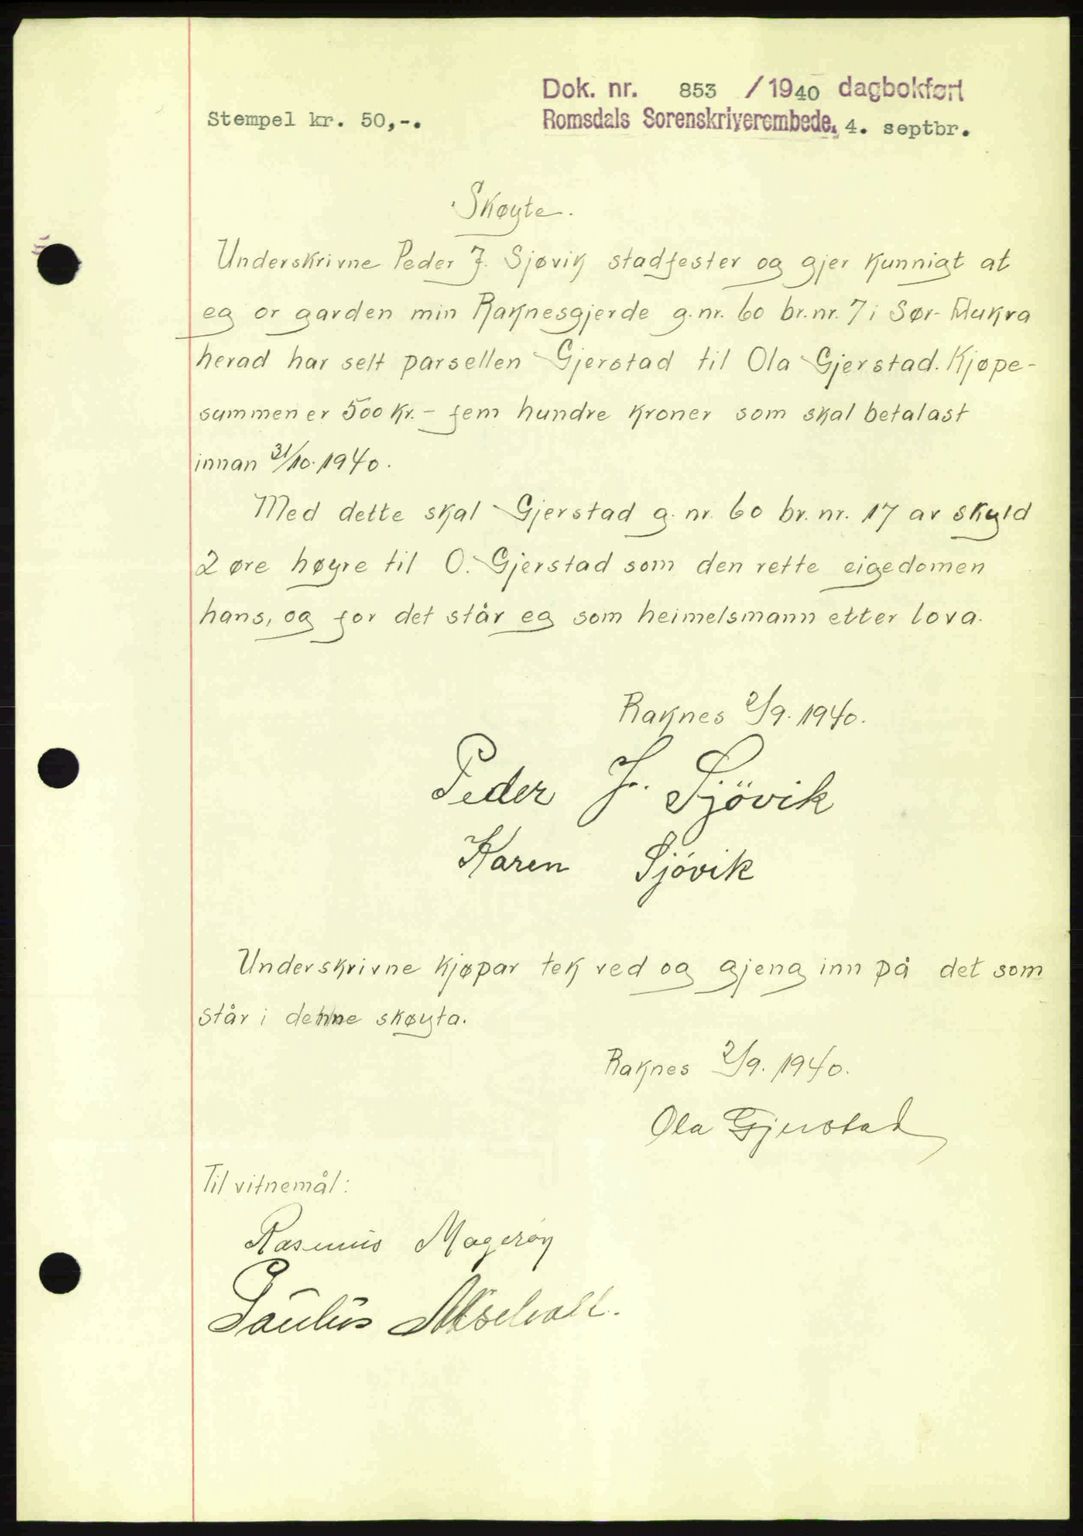 Dok. nr. 853 /1940 dagbokført
Stempel kr. 50,-.
Romsdals Sorenskriverembede, 4. septbr.
Skøyte.
Underskrivne Peder J. Sjøvik stadfester og gjer kunnigt at
eg or garden min Raknesgjerde g.nr. 60 br.nr. 7 i Sør-Aukra
herad har selt parsellen Gjerstad til Ola Gjerstad. Kjøpe-
summen er 500 kr. - fem hundre kroner som skal betalast
innan 31/10. 1940.
Med dette skal Gjerstad g. nr. 60 br. nr. 17 av skyld
2 øre høyre til O. Gjerstad som den rette eigedomen
hans, og for det står eg som heimelsmann etter lova.
Raknes 2/9. 1940.
Peder J. Sjövik
Karen Sjövik
Underskrivne kjøpar tek ved og gjeng inn på det som
står i denne skøyta.
Raknes 2/9. 1940.
Ola Gjerstad
Til vitnemål:
Rasmus Magerøy
Paulus